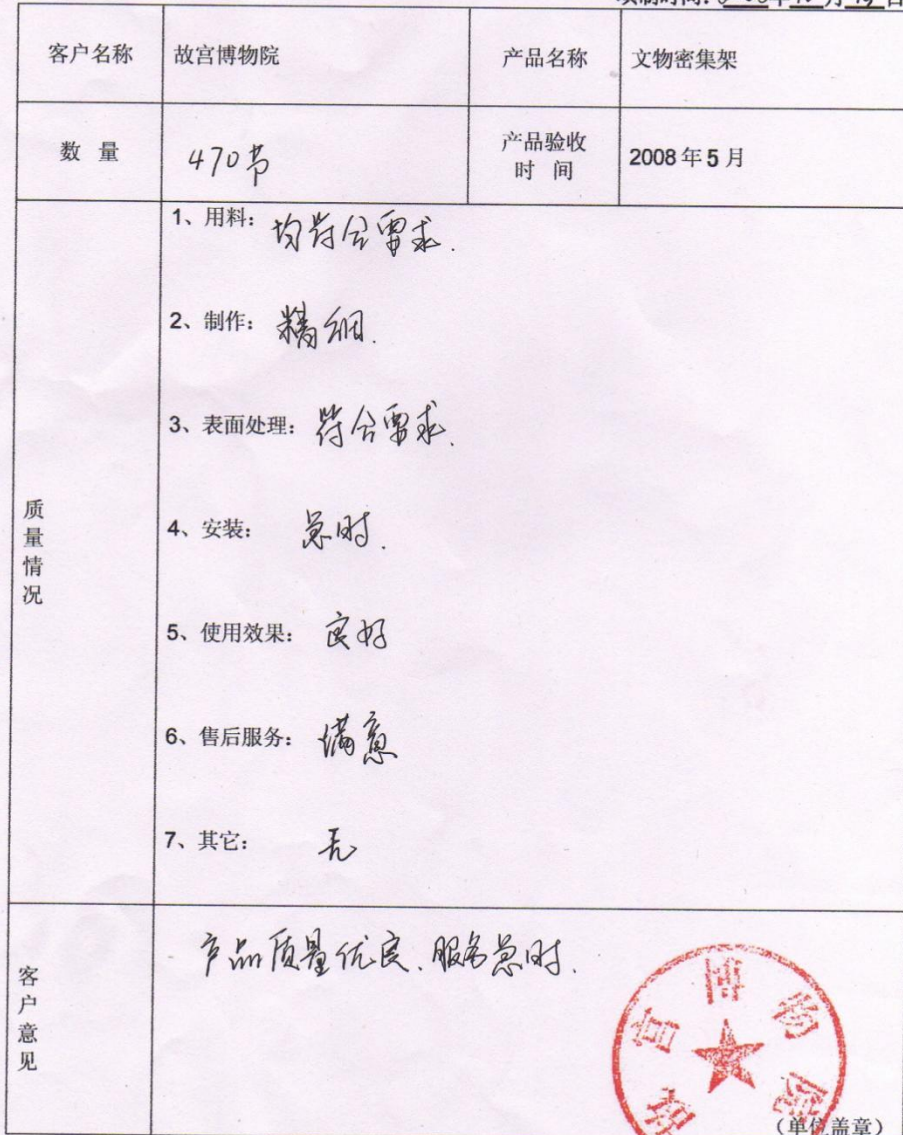 客户名称 故宫博物院 产品名称 文物密集架
数 量 470节 产品验收
时 间 2008年5月
质量情况
1、用料: 均符合要求.
2、制作: 精细.
3、表面处理: 符合要求.
4、安装: 及时.
5、使用效果: 良好
6、售后服务: 满意
7、其它: 无
客户意见
产品质量优良、服务及时.
故宫博物院
(单位盖章)